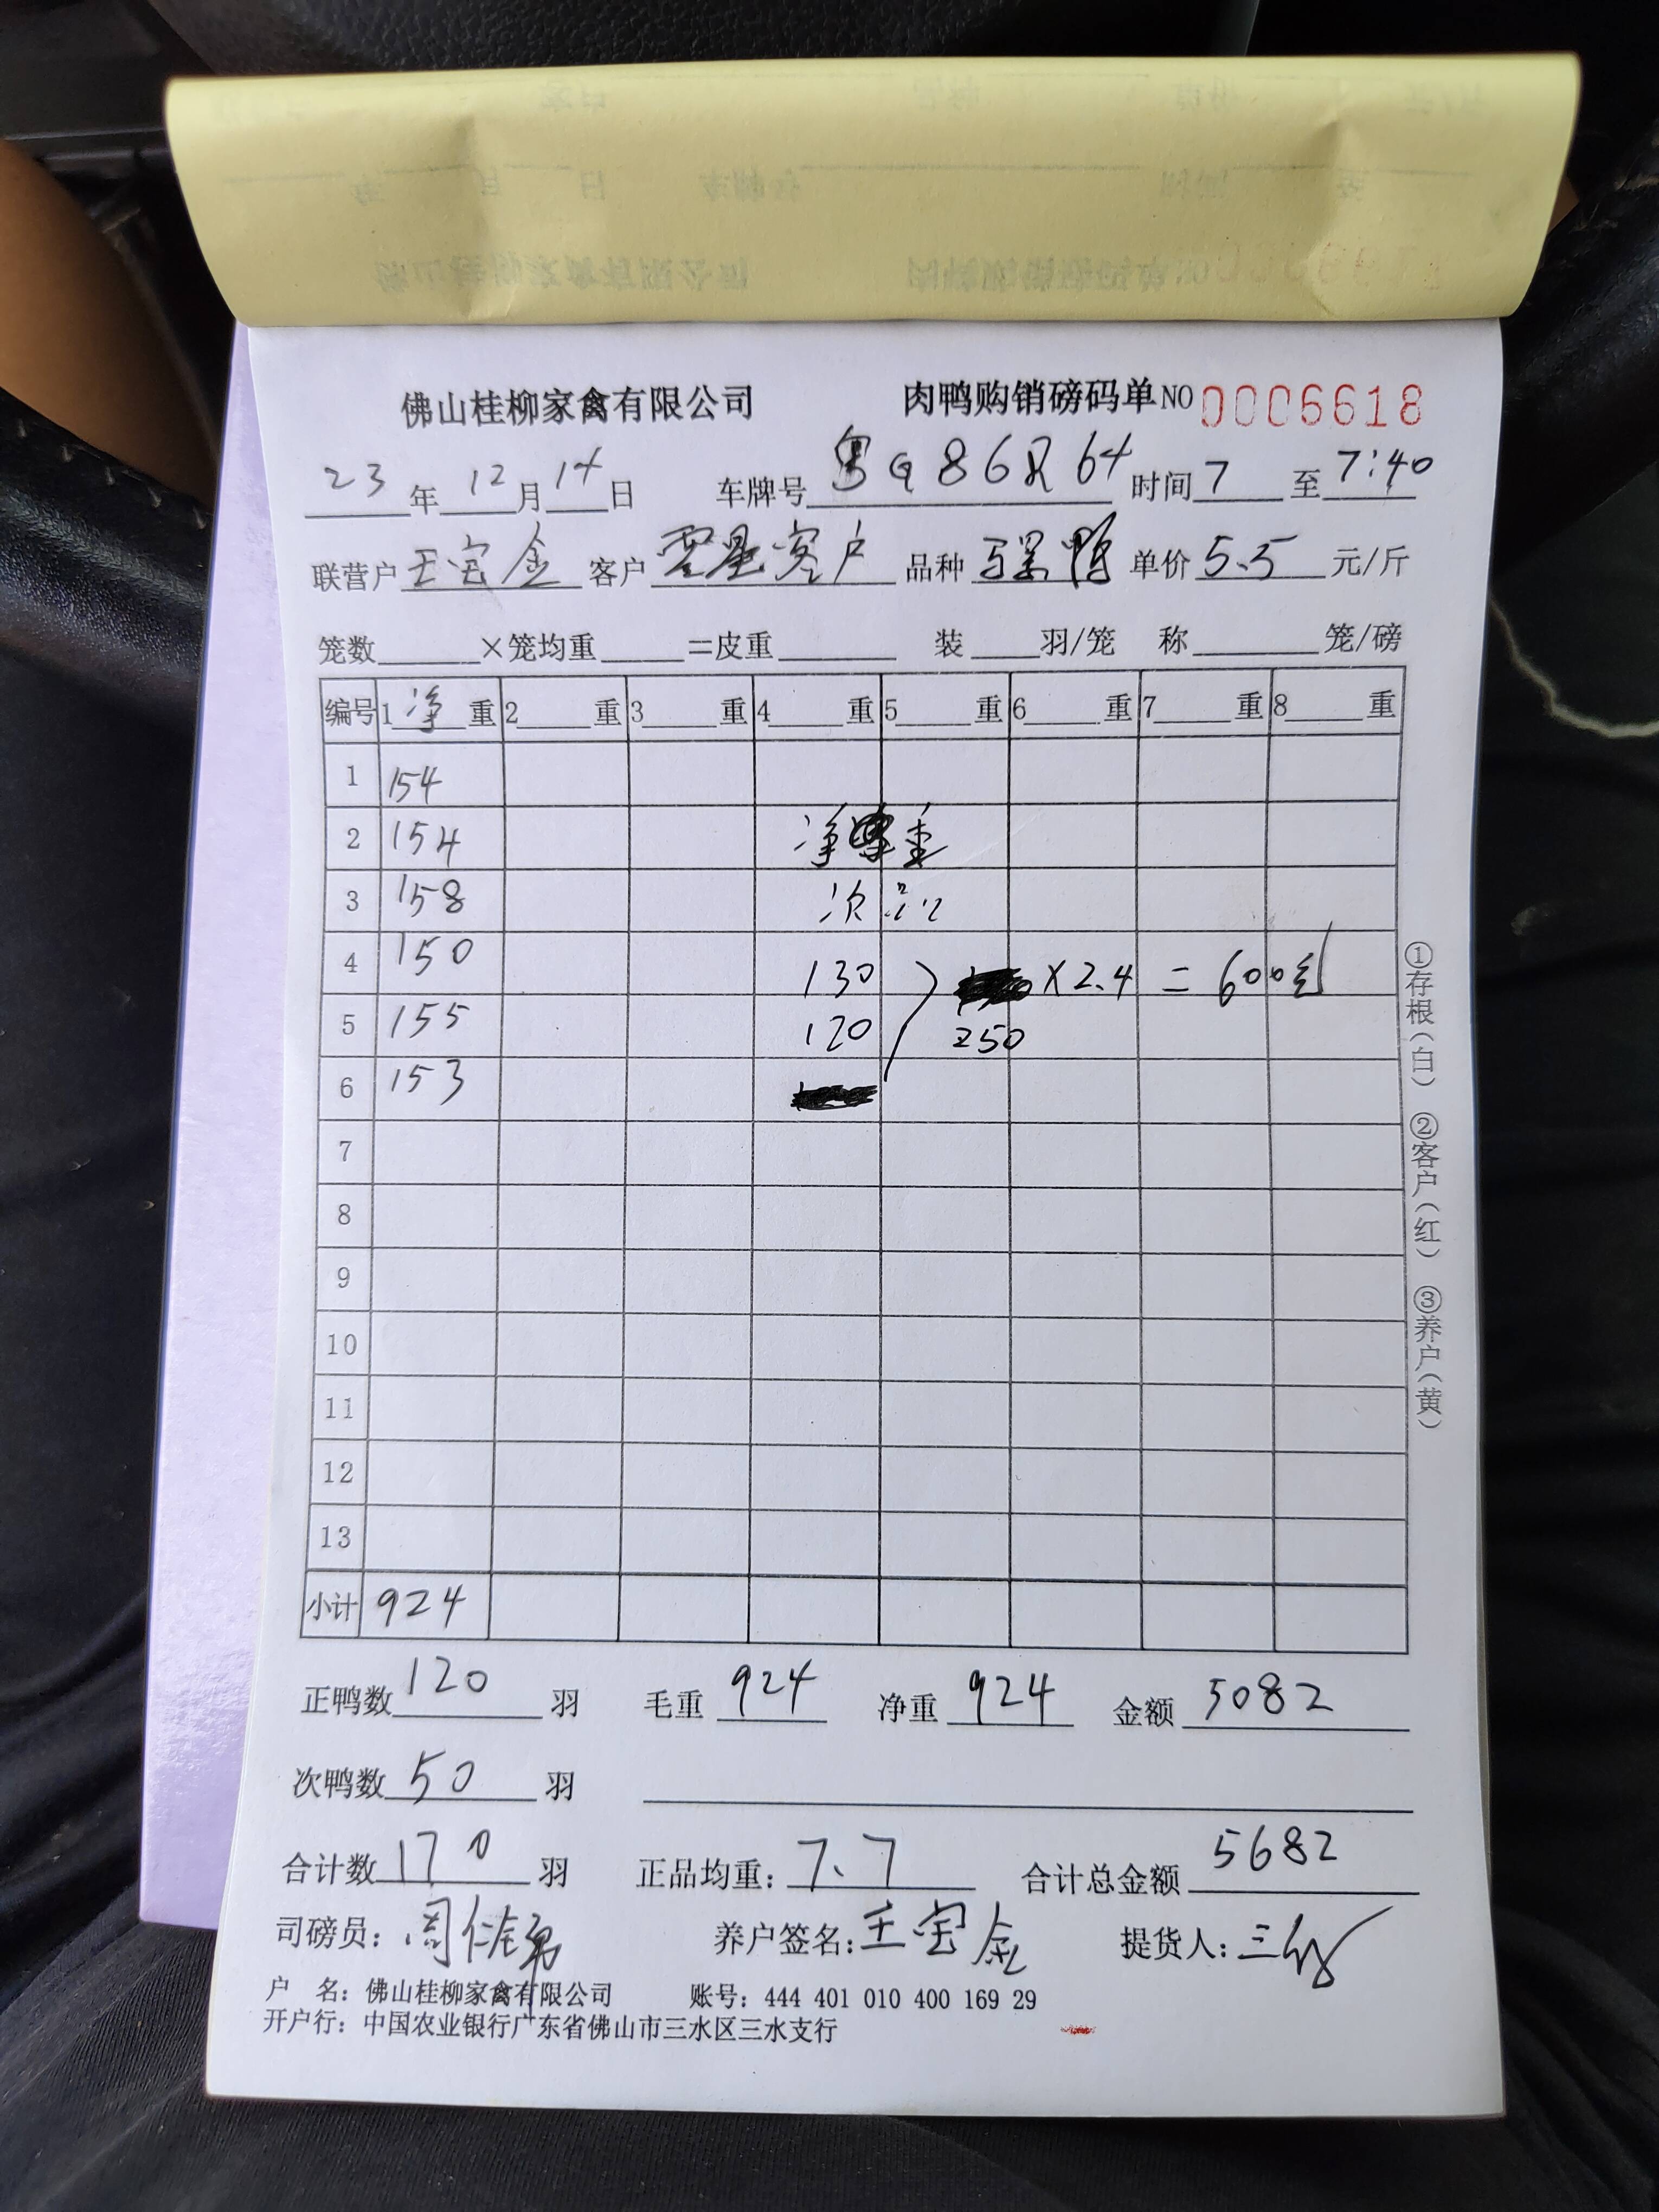 佛山桂柳家禽有限公司 肉鸭购销磅码单NO 0006618
23年12月14日 车牌号粤G86R64 时间7至7:40
联营户王宝金 客户零星客户 品种骡鸭 单价5.5元/斤
笼数 ×笼均重 =皮重 装 羽/笼 称 笼/磅
编号 1净重 2 重 3 重 4 重 5 重 6 重 7 重 8 重
1 154
2 154 净重
3 158 次品
4 150 130 ×2.4 = 600
5 155 120 250
6 153
7
8
9
10
11
12
13
小计 924
①存根(白) ②客户(红) ③养户(黄)
正鸭数120羽 毛重924 净重924 金额5082
次鸭数50羽
合计数170羽 正品均重:7.7 合计总金额5682
司磅员:周 养户签名:王宝金 提货人:
户 名:佛山桂柳家禽有限公司 账号:444 401 010 400 169 29
开户行:中国农业银行广东省佛山市三水区三水支行